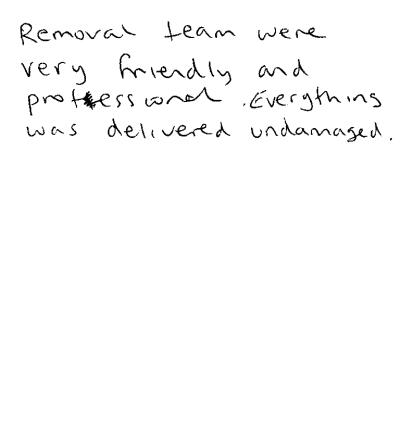 Removal team were
very friendly and
professional. Everything
was delivered undamaged.